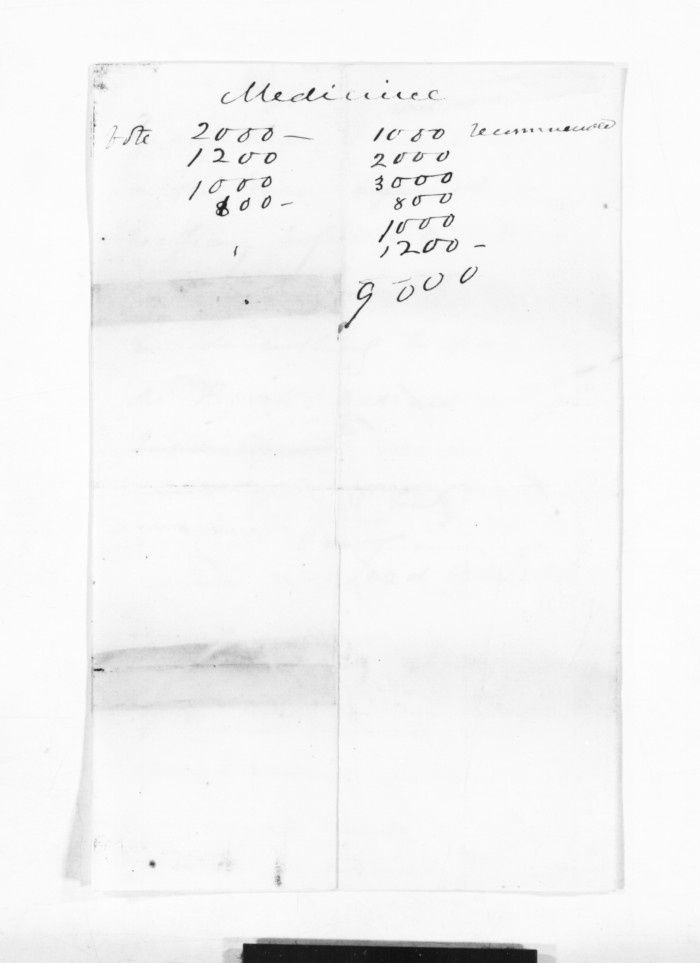 Medicine
Vote 2000 – 1000 recommended
1200 2000
1000 3000
800 – 800
1000
1200 –
9000